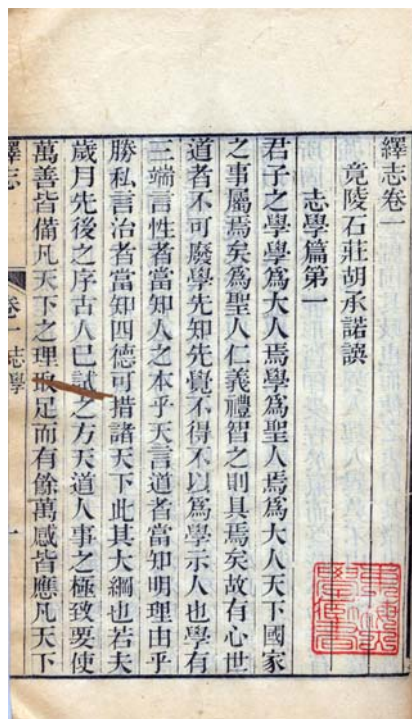 繹志卷一
竟陵石莊胡承諾譔
志學篇第一
君子之學學爲大人焉學爲聖人焉爲大人天下國家
之事屬焉矣爲聖人仁義禮智之則具焉矣故有心世
道者不可廢學先知先覺不得不以爲學示人也學有
三端言性者當知人之本乎天言道者當知明理由乎
勝私言治者當知四德可措諸天下此其大綱也若夫
歲月先後之序古人已試之方天道人事之極致要使
萬善皆備凡天下之理取足而有餘萬感皆應凡天下
繹志
卷一 志學
一